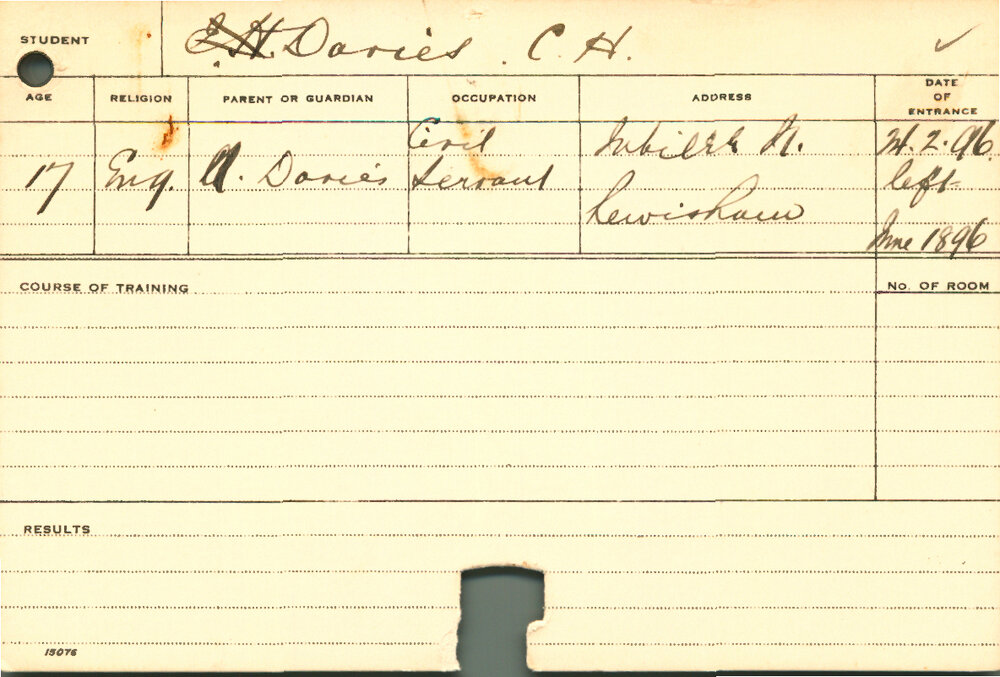 STUDENT
E.H. Davies. C. H. ✓
AGE RELIGION PARENT OR GUARDIAN OCCUPATION ADDRESS DATE OF ENTRANCE
17 Eng. A. Davies Civil Servant Jubilee St. Lewisham 2.96. left June 1896
COURSE OF TRAINING
No. OF ROOM
RESULTS
15076